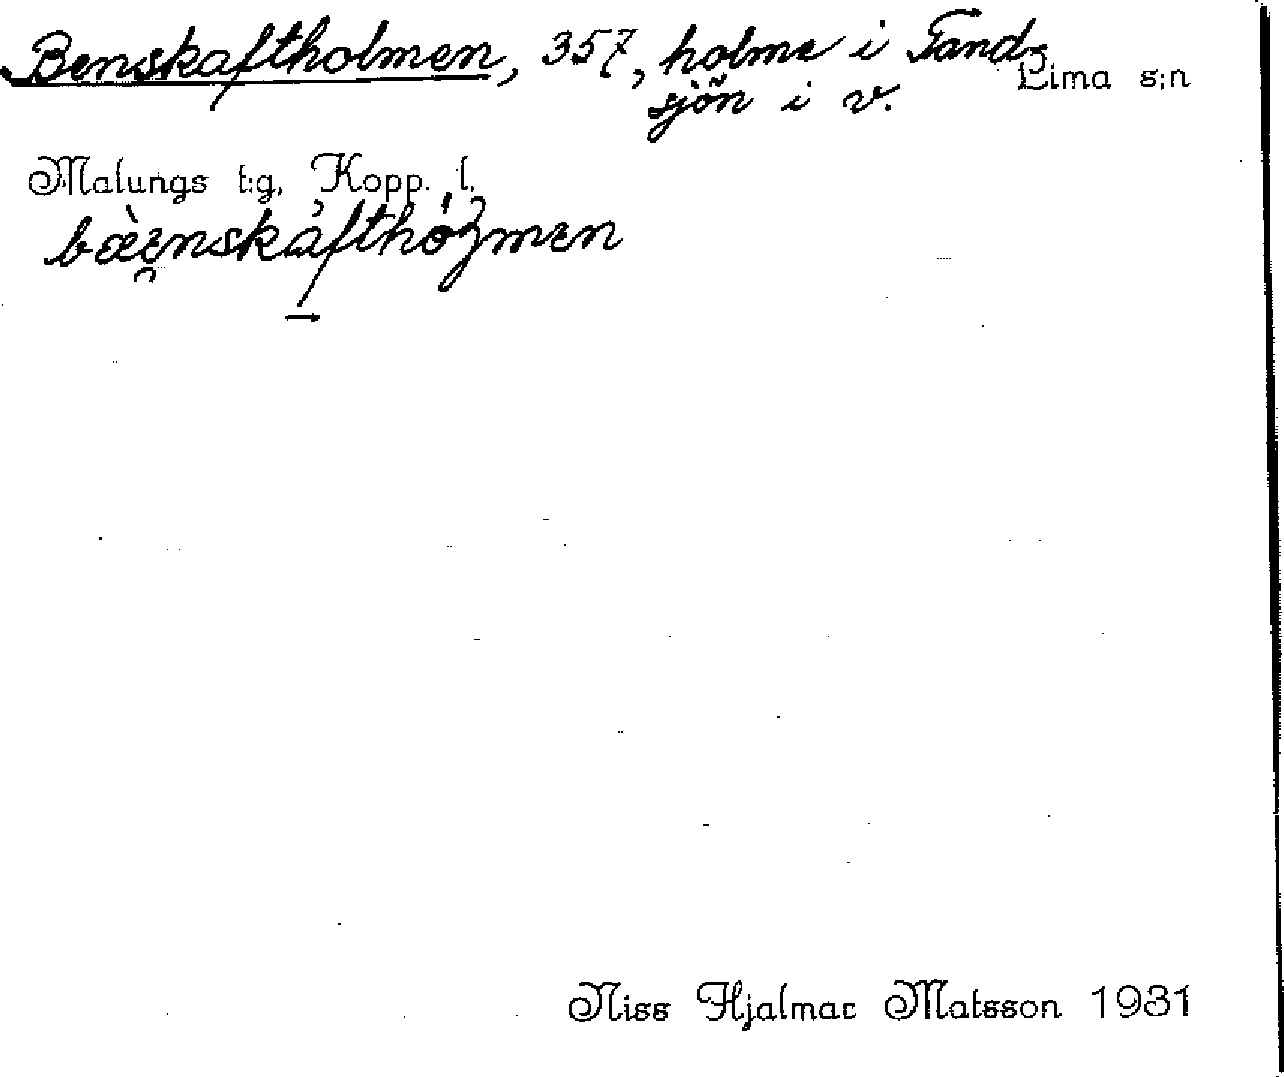 Benskaftholmen, 357, holme i Tand-
sjön i v.
Lima s:n
Malungs t:g, Kopp. l.
Niss Hjalmar Matsson 1931